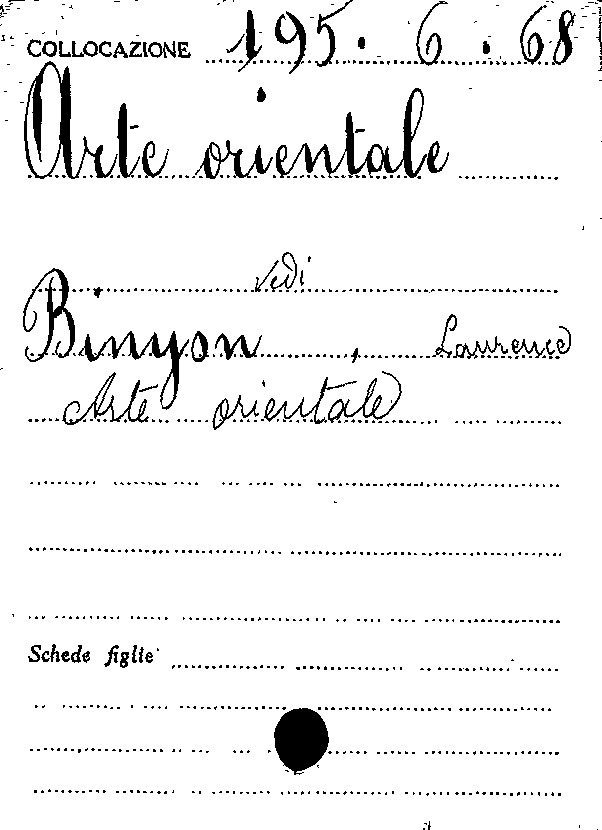 COLLOCAZIONE 195.6.68
Arte orientale
Vedi
Binyon, Laurence
Arte orientale
Schede figlie